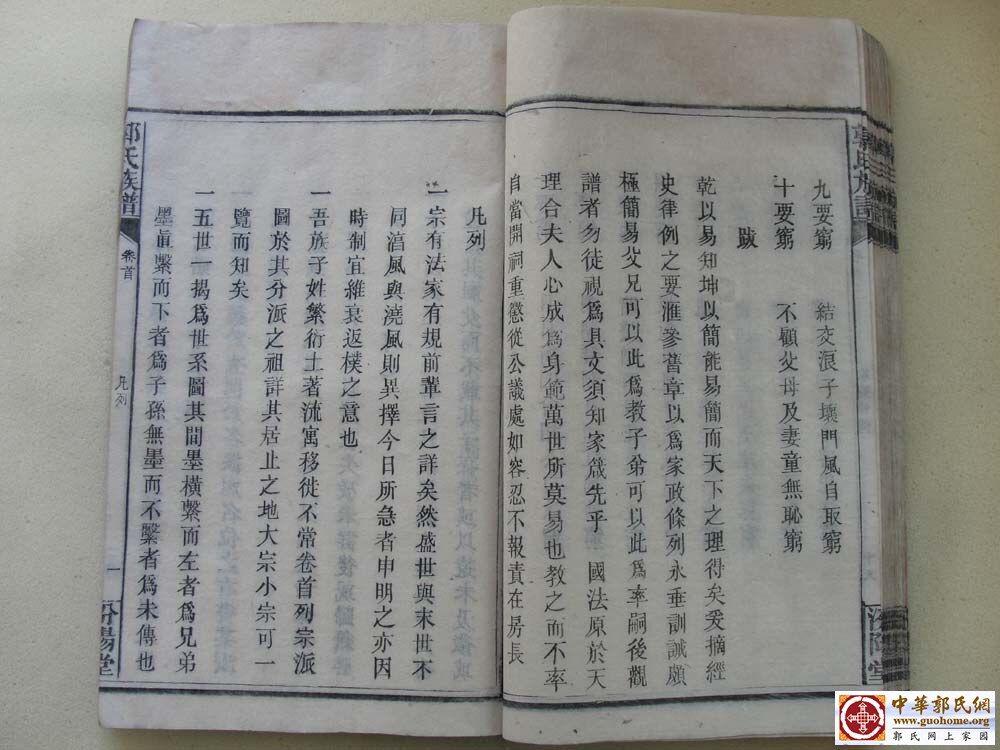 九要窮 結交浪子壞門風自取窮
十要窮 不顧父母及妻童無恥窮
跋
乾以易知坤以簡能易簡而天下之理得矣爰摘經
史律例之要滙參舊章以爲家政條列永垂訓誡願
極簡易父兄可以此爲教子弟可以此爲率嗣後觀
譜者勿徒視爲具文須知家箴先乎 國法原於天
理合夫人心成爲身範萬世所莫易也教之而不率
自當開祠重懲從公議處如容忍不報責在房長
郭氏族譜
汾陽堂
凡列
一宗有法家有規前輩言之詳矣然盛世與末世不
同淳風與澆風則異擇今日所急者申明之亦因
時制宜維衰返樸之意也
一吾族子姓繁衍土著流寓移徙不常卷首列宗派
圖於其分派之祖詳其居止之地大宗小宗可一
覽而知矣
一五世一揭爲世系圖其間墨橫繫而左者爲兄弟
墨直繫而下者爲子孫無墨而不繫者爲未傳也
郭氏族譜 卷首 凡列 一 汾陽堂
中華郭氏網
www.guohome.org
郭氏網上家園